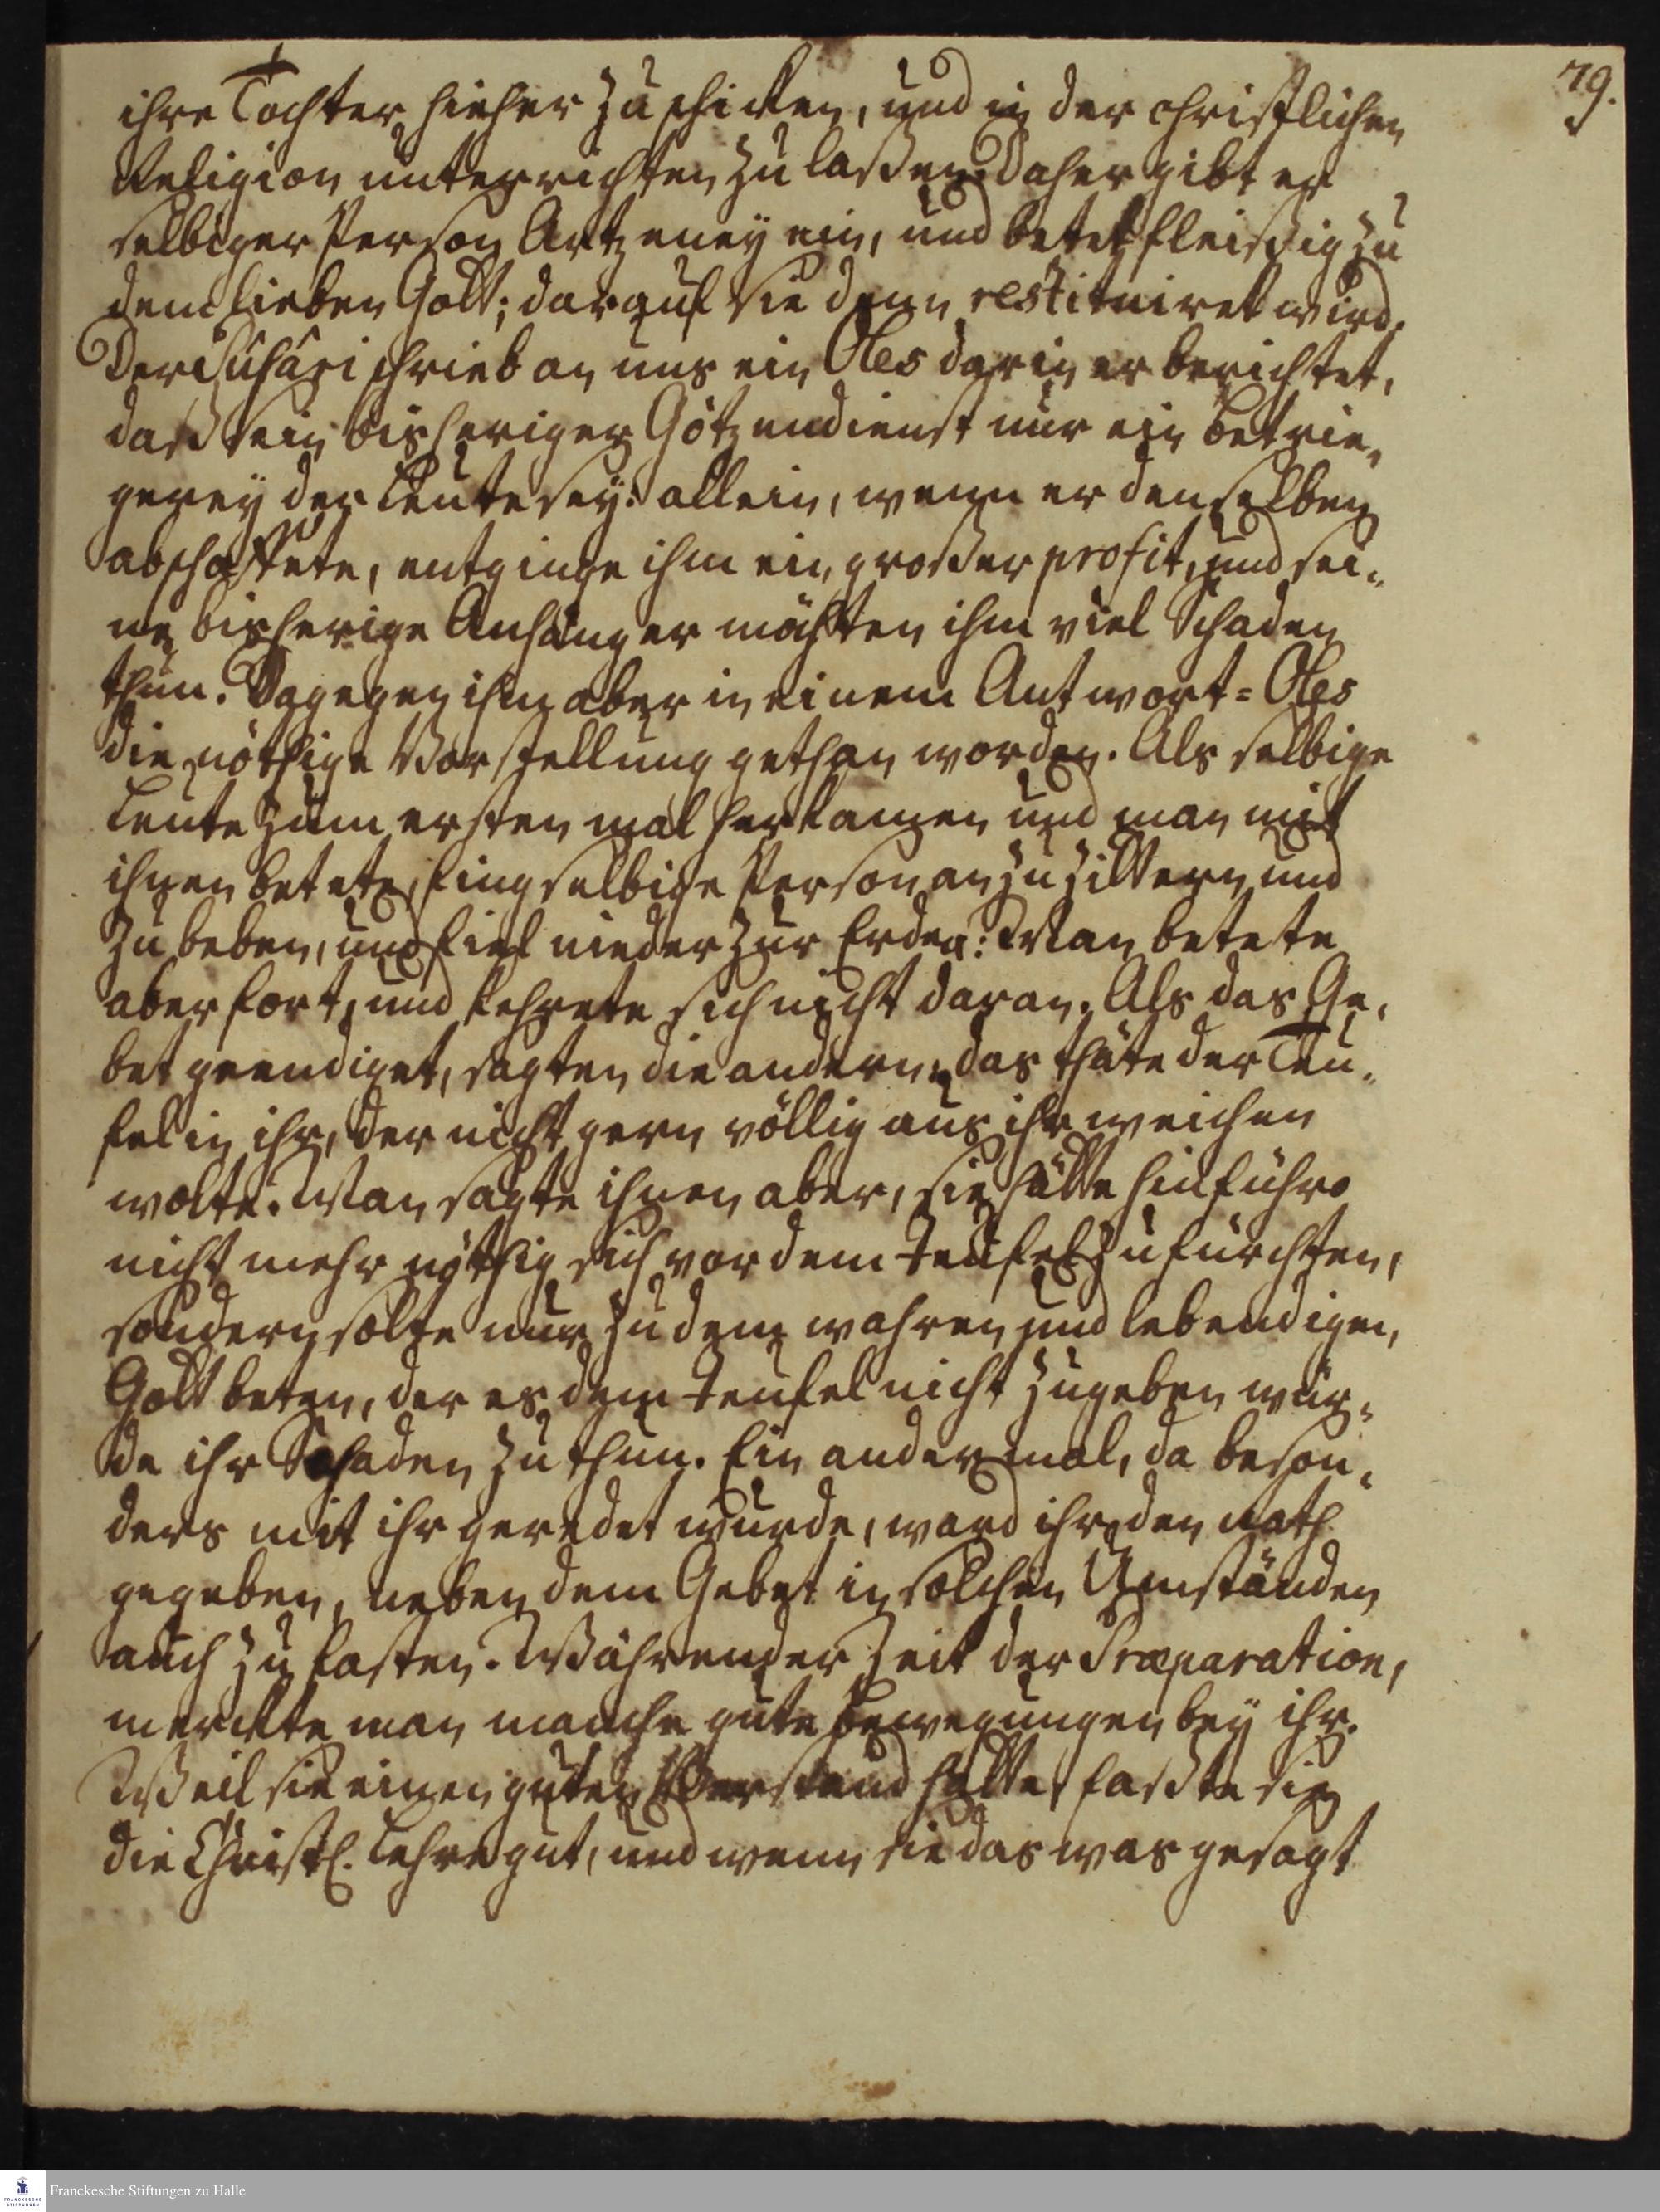 79.
ihre Tochter hieher zu schicken, und in der christlichen
Religion unterrichten zu laßen. Daher gibt er
selbiger Person Artzeney ein, und betet fleißig zu
dem lieben Gott; darauf sie denn restituiret wird.
Der Pûhâri schrieb an uns ein Oles darin er berichtet,
daß sein bisheriger Götzendienst nur ein Betrie-
gerey der Leute sey: allein, wenn er denselben
abschaffete, entginge ihm ein großer profit, und sei-
ne bisherige Anhänger möchten ihm viel Schaden
thun. Dagegen ihm aber in einem Antwort=Oles
die nöthige Vorstellung gethan worden. Als selbige
Leute zum ersten mal her kamen und man mit
ihnen betete, fing selbige Person an zu zittern und
zu beben, und fiel nieder zur Erden: Man betete
aber fort, und kehrete sich nicht daran. Als das Ge-
bet geendiget, sagten die andern, das thäte der Teu-
fel in ihr, der nicht gern völlig aus ihr weichen
wolte. Man sagte ihnen aber, sie hätte hinführo
nicht mehr nöthig sich vor dem Teufel zu fürchten,
sondern solte nur zu dem wahren und lebendigen
Gott beten, der es dem Teufel nicht zugeben wür-
de ihr Schaden zu thun. Ein andermal, da beson-
ders mit ihr geredet wurde, ward ihr der Rath
gegeben, neben dem Gebet in solchen Umständen
auch zu fasten. Währender Zeit der Præparation,
merckte man manche gute Bewegungen bey ihr.
Weil sie einen guten Verstand hatte, faßte sie
die Christl. Lehre gut, und wenn sie das was gesagt
Franckesche Stiftungen zu Halle
FRANCKESCHE
STIFTUNGEN